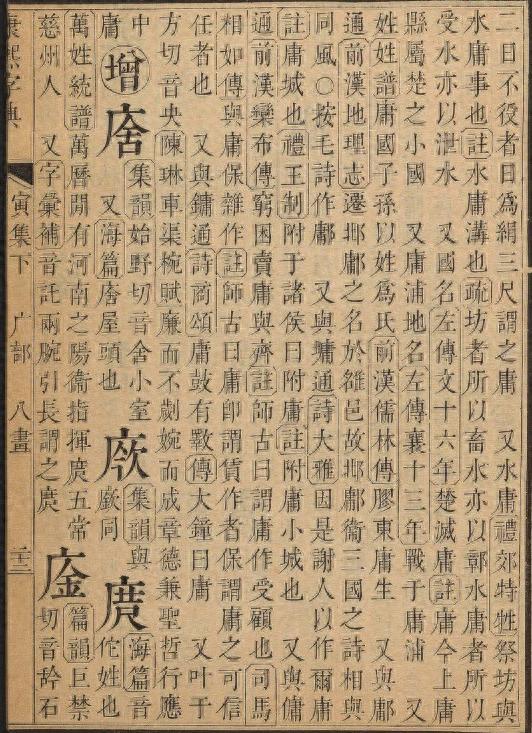 二日不役者日爲絹三尺謂之庸　又水庸禮郊特牲祭坊與
水庸事也註水庸溝也疏坊者所以畜水亦以鄣水庸者所以
受水亦以泄水　又國名左傳文十六年楚滅庸註庸今上庸
縣屬楚之小國　又庸浦地名左傳襄十三年戰于庸浦　又
姓姓譜庸國子孫以姓爲氏前漢儒林傳膠東庸生　又與鄘
通前漢地理志遷邶鄘之名於雒邑故邶鄘衞三國之詩相與
同風○按毛詩作鄘　又與墉通詩大雅因是謝人以作爾庸
註庸城也禮王制附于諸侯曰附庸註附庸小城也　又與傭
通前漢欒布傳窮困賣庸與齊註師古曰謂庸作受顧也司馬
相如傳與庸保雜作註師古曰庸卽謂賃作者保謂庸之可信
任者也　又與鏞通詩商頌庸鼓有斁傳大鐘曰庸　又叶于
方切音央陳琳車渠椀賦廉而不劌婉而成章德兼聖哲行應
中
增
㢗集韻始野切音舍小室　又海篇㢗屋頭也
㢝集韻與廞同
㢙海篇音佗姓也
萬姓統譜萬曆閒有河南之陽衞指揮㢙五常
慈州人　又字彙補音託兩腕引長謂之㢙
㢛篇韻巨禁切音䶖石
康熙字典
寅集下
广部
八畫
三三